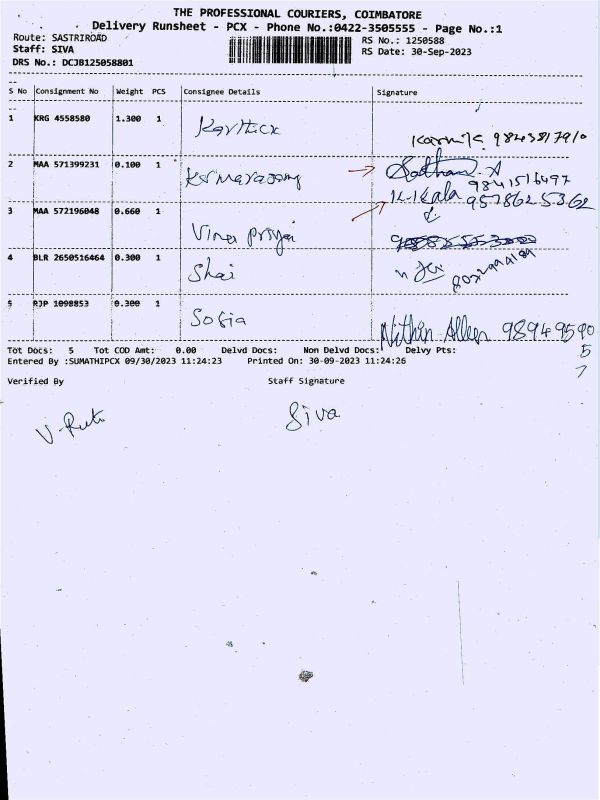 THE PROFESSIONAL COURIERS, COIMBATORE
Delivery Runsheet - PCX - Phone No.:0422-3505555 - Page No.:1
Route: SASTRIROAD
RS No.: 1250588
Staff: SIVA
RS Date: 30-Sep-2023
DRS No.: DCJB125058801
S No Consignment No Weight PCS Consignee Details Signature
1 KRG 4558580 1.300 1 Karthick
2 MAA 571399231 0.100 1
9841516497
K.Kala 9578625362
3 MAA 572196048 0.660 1 Vina Priyai
4 BLR 2650516464 0.300 1 Shai
5 RJP 1098853 0.300 1 Sofia
Nithin Allen 98949590
5
7
Tot Docs: 5 Tot COD Amt: 0.00 Delvd Docs: Non Delvd Docs: Delvy Pts:
Entered By :SUMATHIPCX 09/30/2023 11:24:23 Printed On: 30-09-2023 11:24:26
Verified By Staff Signature
Siva